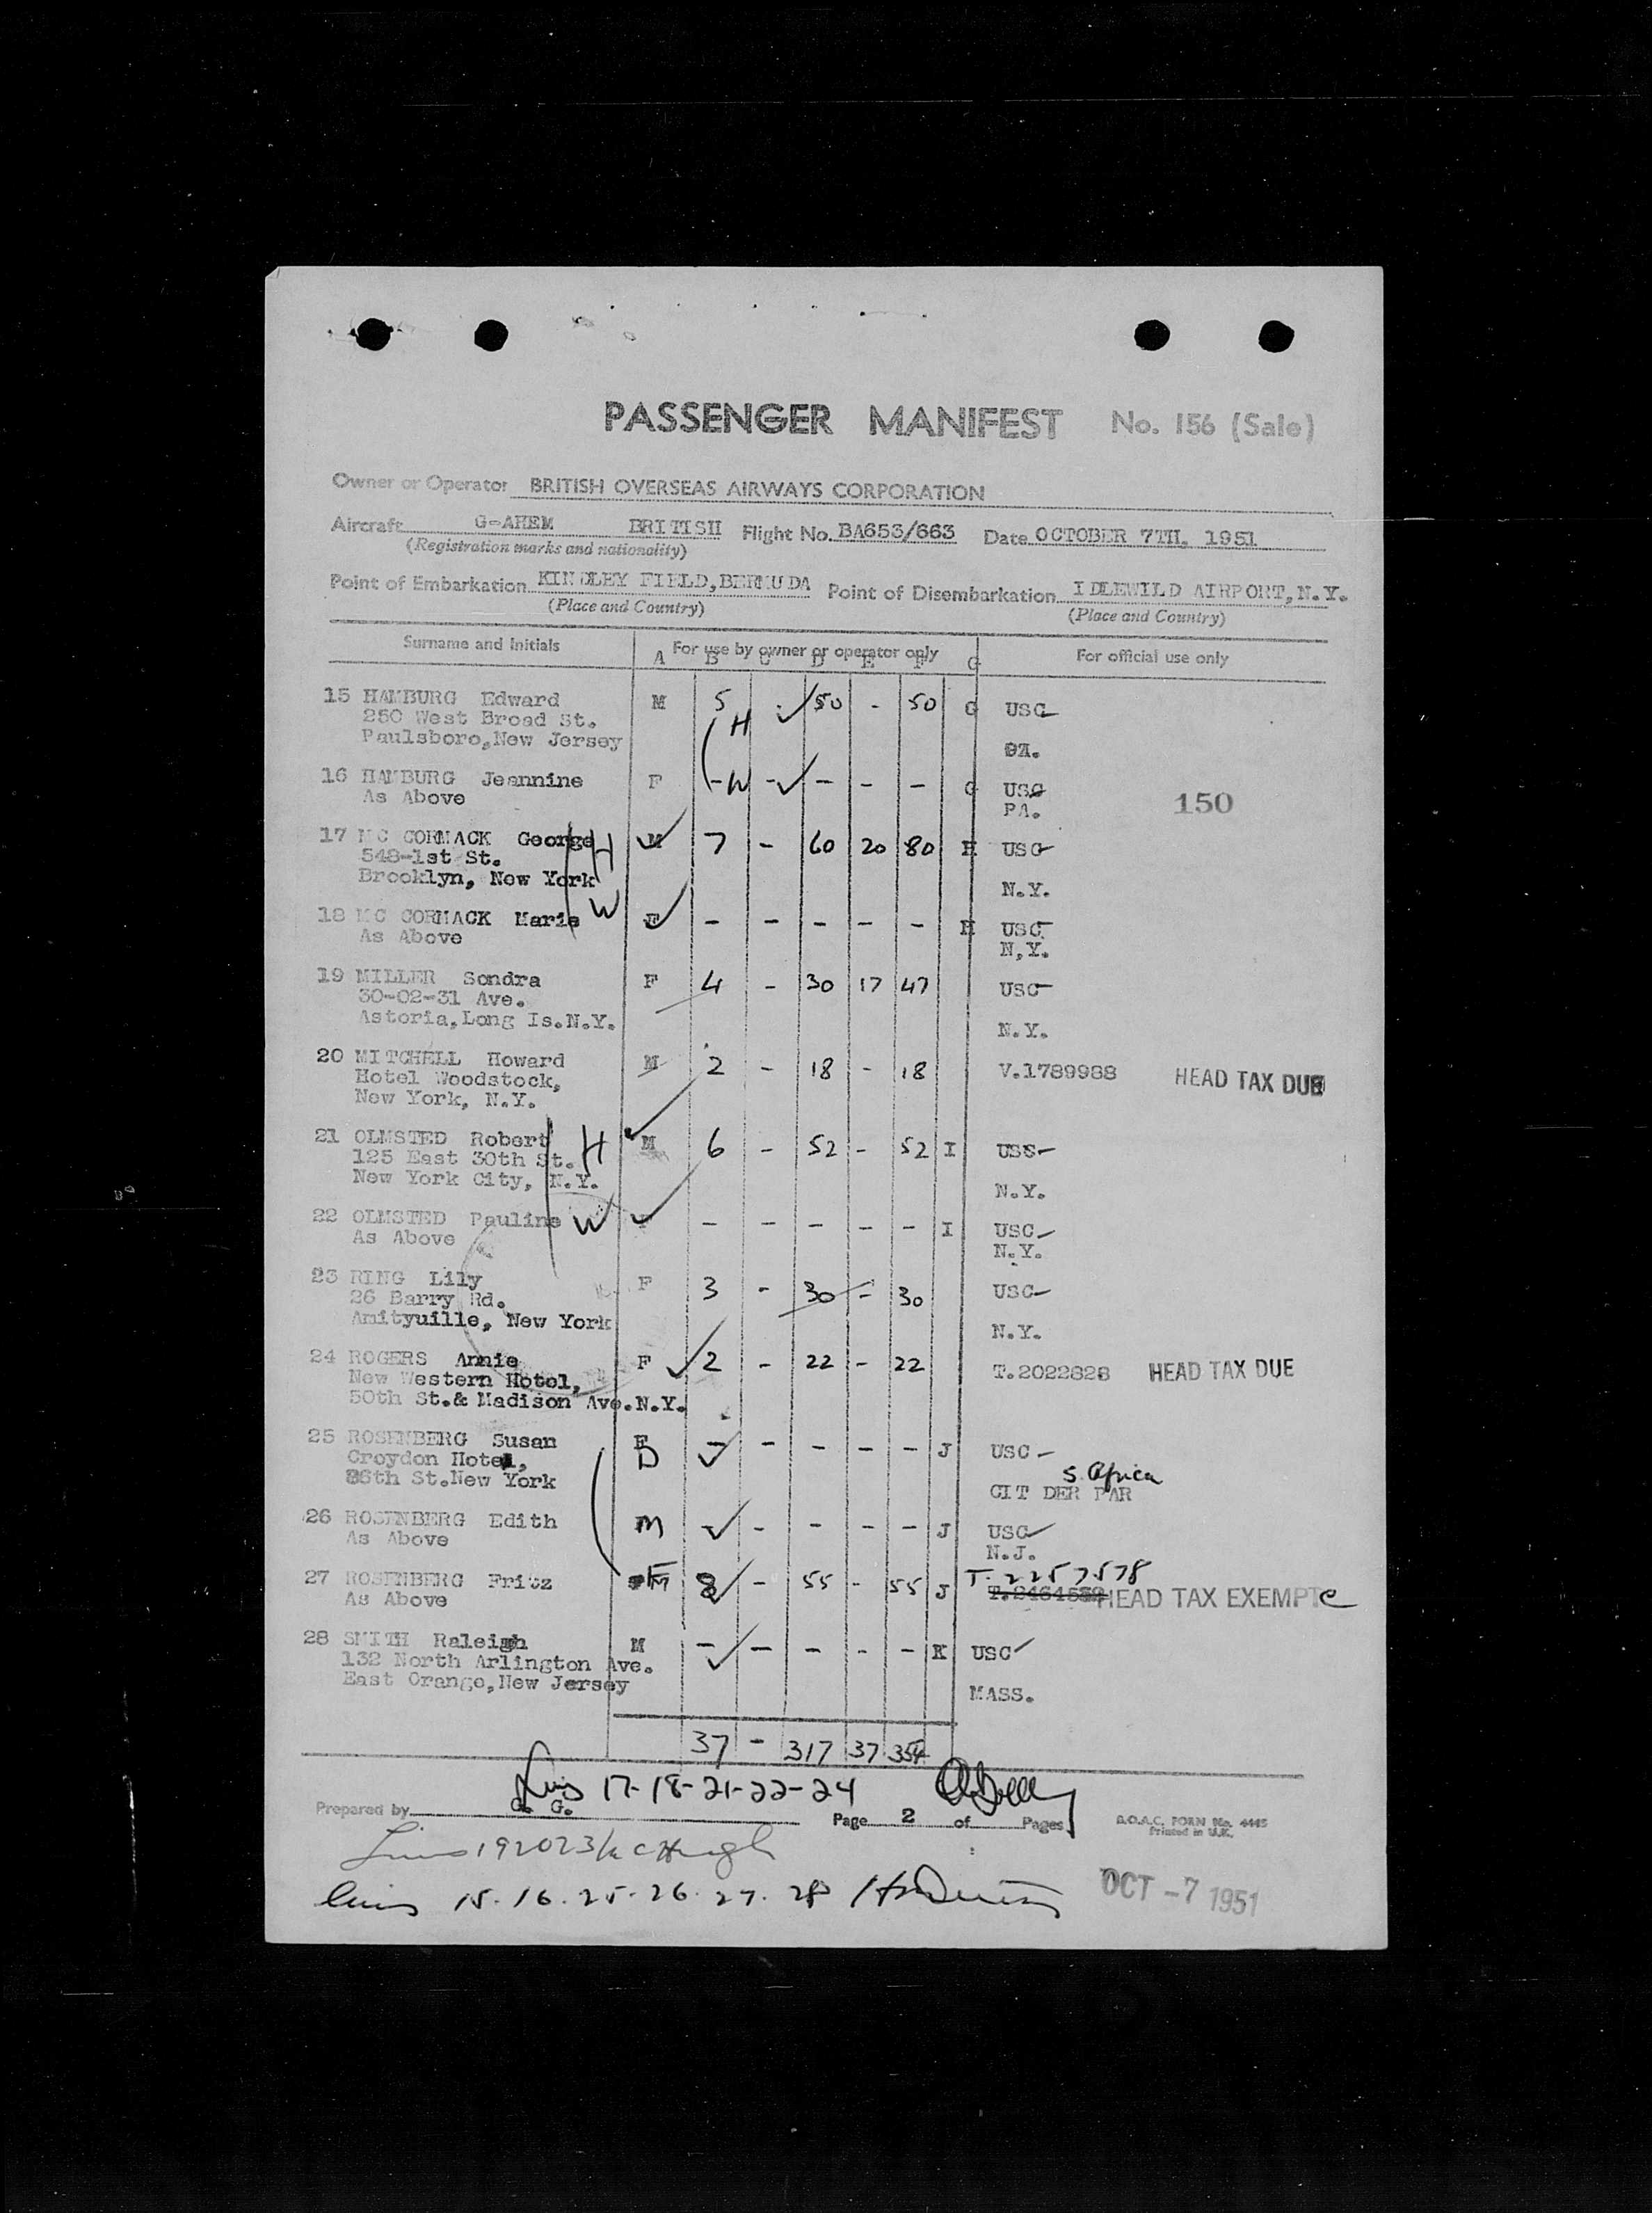 PASSENGER MANIFEST No. 156 (Sale)
Owner or Operator BRITISH OVERSEAS AIRWAYS CORPORATION
Aircraft G-AHEM BRITISH Flight No. BA653/663 Date OCTOBER 7TH, 1951
(Registration marks and nationality)
Point of Embarkation KINDLEY FIELD, BERMUDA Point of Disembarkation IDLEWILD AIRPORT, N.Y.
(Place and Country) (Place and Country)
Surname and Initials For use by owner or operator only For official use only
A B C D E F G
15 HAMBURG Edward M 5 - 50 - 50 G USC
250 West Broad St. H
Paulsboro, New Jersey
16 HAMBURG Jeannine F - W - - - - G USC
As Above PA. 150
17 MC CORMACK George H M 7 - 60 20 80 H USC
548-1st St.
Brooklyn, New York N.Y.
18 MC CORMACK Marie W F - - - - - H USC
As Above N.Y.
19 MILLER Sondra F 4 - 30 17 47 USC
30-02-31 Ave.
Astoria, Long Is. N.Y. N.Y.
20 MITCHELL Howard M 2 - 18 - 18 V.1789988 HEAD TAX DUE
Hotel Woodstock,
New York, N.Y.
21 OLMSTED Robert H M 6 - 52 - 52 I USS
125 East 30th St.
New York City, N.Y. N.Y.
22 OLMSTED Pauline W F - - - - - I USC
As Above N.Y.
23 RING Lily F 3 - 30 - 30 USC
26 Barry Rd.
Amityuille, New York N.Y.
24 ROGERS Annie F 2 - 22 - 22 T.2022828 HEAD TAX DUE
New Western Hotel,
50th St. & Madison Ave. N.Y.
25 ROSENBERG Susan F - - - - - J USC
Croydon Hotel, D S. Africa
86th St. New York CIT DER PAR
26 ROSENBERG Edith M - - - - - J USC
As Above N.J.
T-2257578
27 ROSENBERG Fritz F M 8 - 55 - 55 J HEAD TAX EXEMPT C
As Above
28 SMITH Raleigh M - - - - - K USC
132 North Arlington Ave.
East Orange, New Jersey MASS.
37 - 317 37 354
17-18-21-22-24
Prepared by G. G. Page 2 of Pages B.O.A.C. FORM No. 4445
Printed in U.K.
19 20 23
15. 16. 25. 26. 27. 28 OCT -7 1951